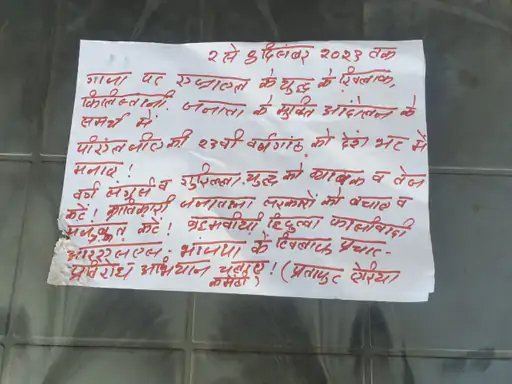 2 से 8 दिसंबर 2023 तक
गाजा पर इजराइल के युद्ध के खिलाफ,
फिलिस्तीनी जनता के मुक्ति आंदोलन के
समर्थ में
पीएलजीए की 23वीं वर्षगांठ को देश भर में
मनाए!
वर्ग संघर्ष व गुरिल्ला युद्ध को व्यापक व तेज
करें! क्रांतिकारी जनताना सरकारों को बचाव व
मजबूत करें! ब्राह्मणीय हिन्दुत्व फासीवादी
आरएसएस - भाजपा के खिलाफ प्रचार-
प्रतिरोध अभियान चलाए! (प्रतापपुर एरिया
कमेटी)